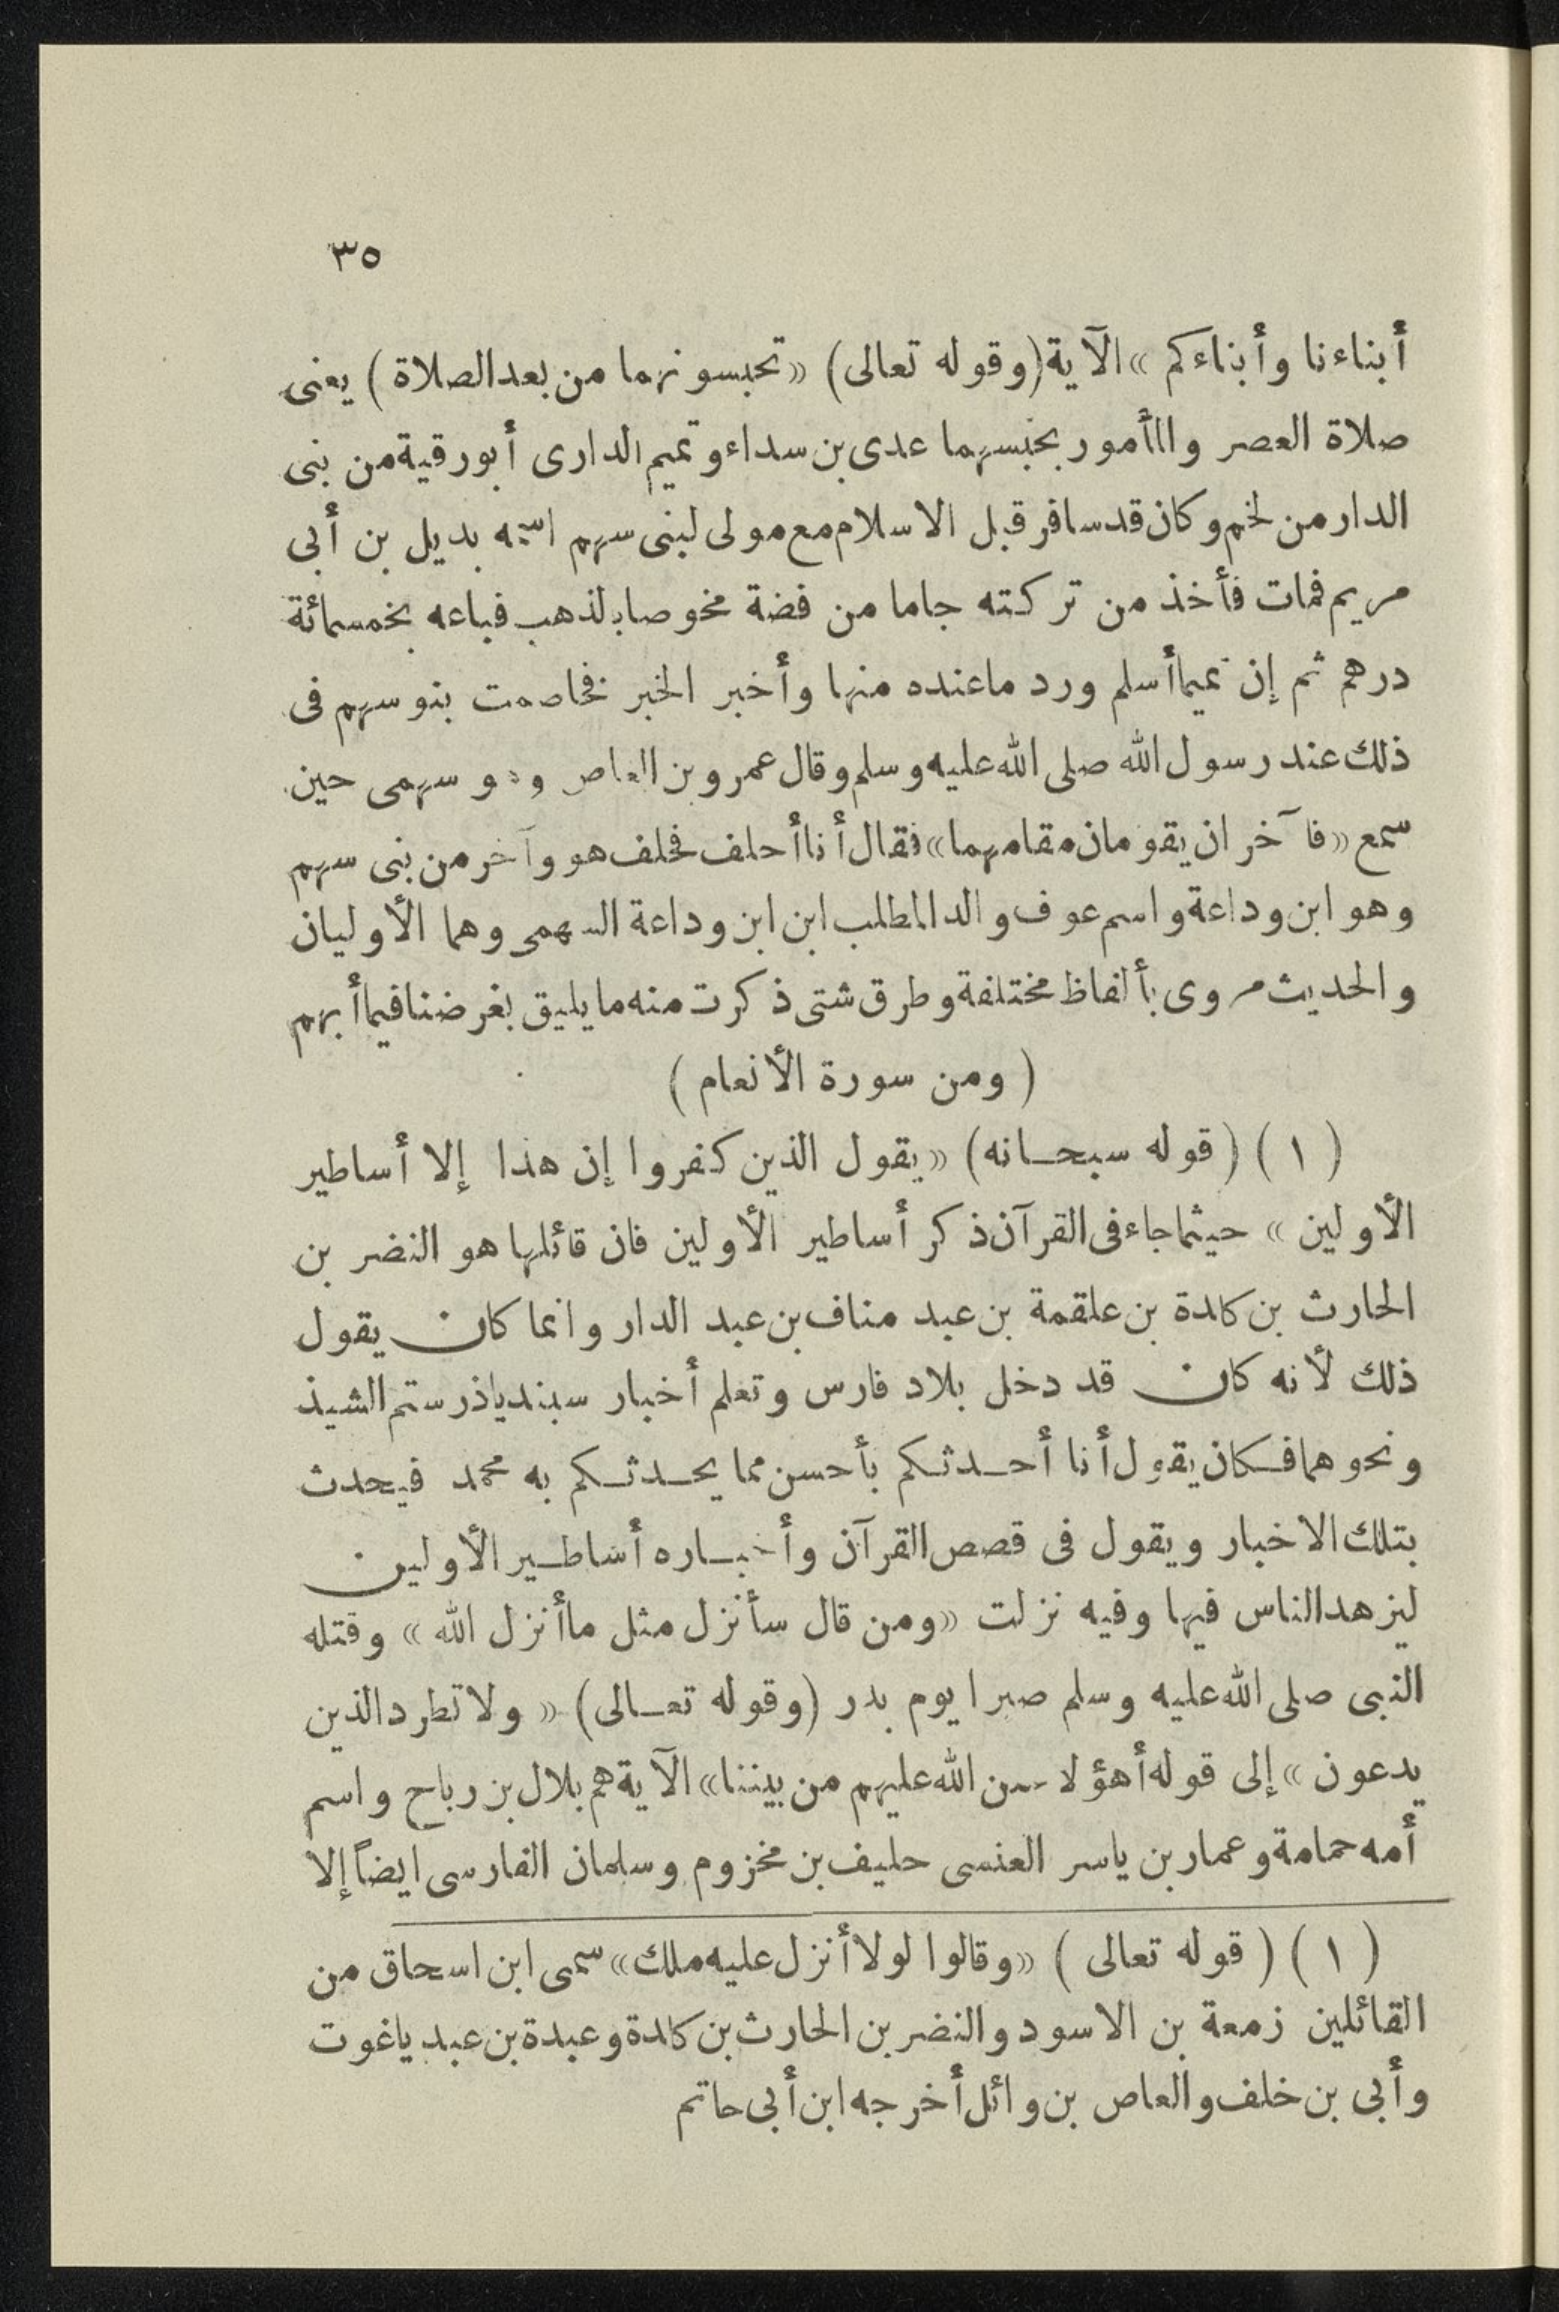 ٣٥
أبناءنا وأبناءكم» الآية (وقوله تعالى) «تحبسونهما من بعد الصلاة) يعنى
صلاة العصر والمأمور بحبسهما عدى بن سداء وتميم الدارى أبو رقية من بنى
الدار من لخم وكان قد سافر قبل الاسلام مع مولى لبنى سهم اسمه بديل بن أبى
مريم فمات فأخذ من تركته جاما من فضة مخوصا بالذهب فباعه بخمسمائة
درهم ثم إن تميما أسلم ورد ما عنده منها وأخبر الخبر فخاصمت بنو سهم فى
ذلك عند رسول الله صلى الله عليه وسلم وقال عمرو بن العاص وهو سهمى حين
سمع «فآخران يقومان مقامهما» فقال أنا أحلف فحلف هو وآخر من بنى سهم
وهو ابن وداعة واسم عوف والد المطلب ابن ابن وداعة السهمى وهما الأوليان
والحديث مروى بألفاظ مختلفة وطرق شتى ذكرت منه ما يليق بغرضنا فيما أبهم
(ومن سورة الأنعام)
(١) (قوله سبحانه) «يقول الذين كفروا إن هذا إلا أساطير
الأولين» حيثما جاء فى القرآن ذكر أساطير الأولين فان قائلها هو النضر بن
الحارث بن كلدة بن علقمة بن عبد مناف بن عبد الدار وانما كان يقول
ذلك لأنه كان قد دخل بلاد فارس وتعلم أخبار سبندياذ رستم الشيذ
ونحوهما فكان يقول أنا أحدثكم بأحسن مما يحدثكم به محمد فيحدث
بتلك الاخبار ويقول فى قصص القرآن وأخباره أساطير الأولين
ليزهد الناس فيها وفيه نزلت «ومن قال سأنزل مثل ما أنزل الله» وقتله
النبى صلى الله عليه وسلم صبرا يوم بدر (وقوله تعالى) «ولا تطرد الذين
يدعون» إلى قوله أهؤلا من الله عليهم من بيننا» الآية هم بلال بن رباح واسم
أمه حمامة وعمار بن ياسر العنسى حليف بن مخزوم وسلمان الفارسى ايضاً إلا
(١) (قوله تعالى) «وقالوا لولا أنزل عليه ملك» سمى ابن اسحاق من
القائلين زمعة بن الاسود والنضر بن الحارث بن كلدة وعبدة بن عبد ياغوت
وأبى بن خلف والعاص بن وائل أخرجه ابن أبى حاتم